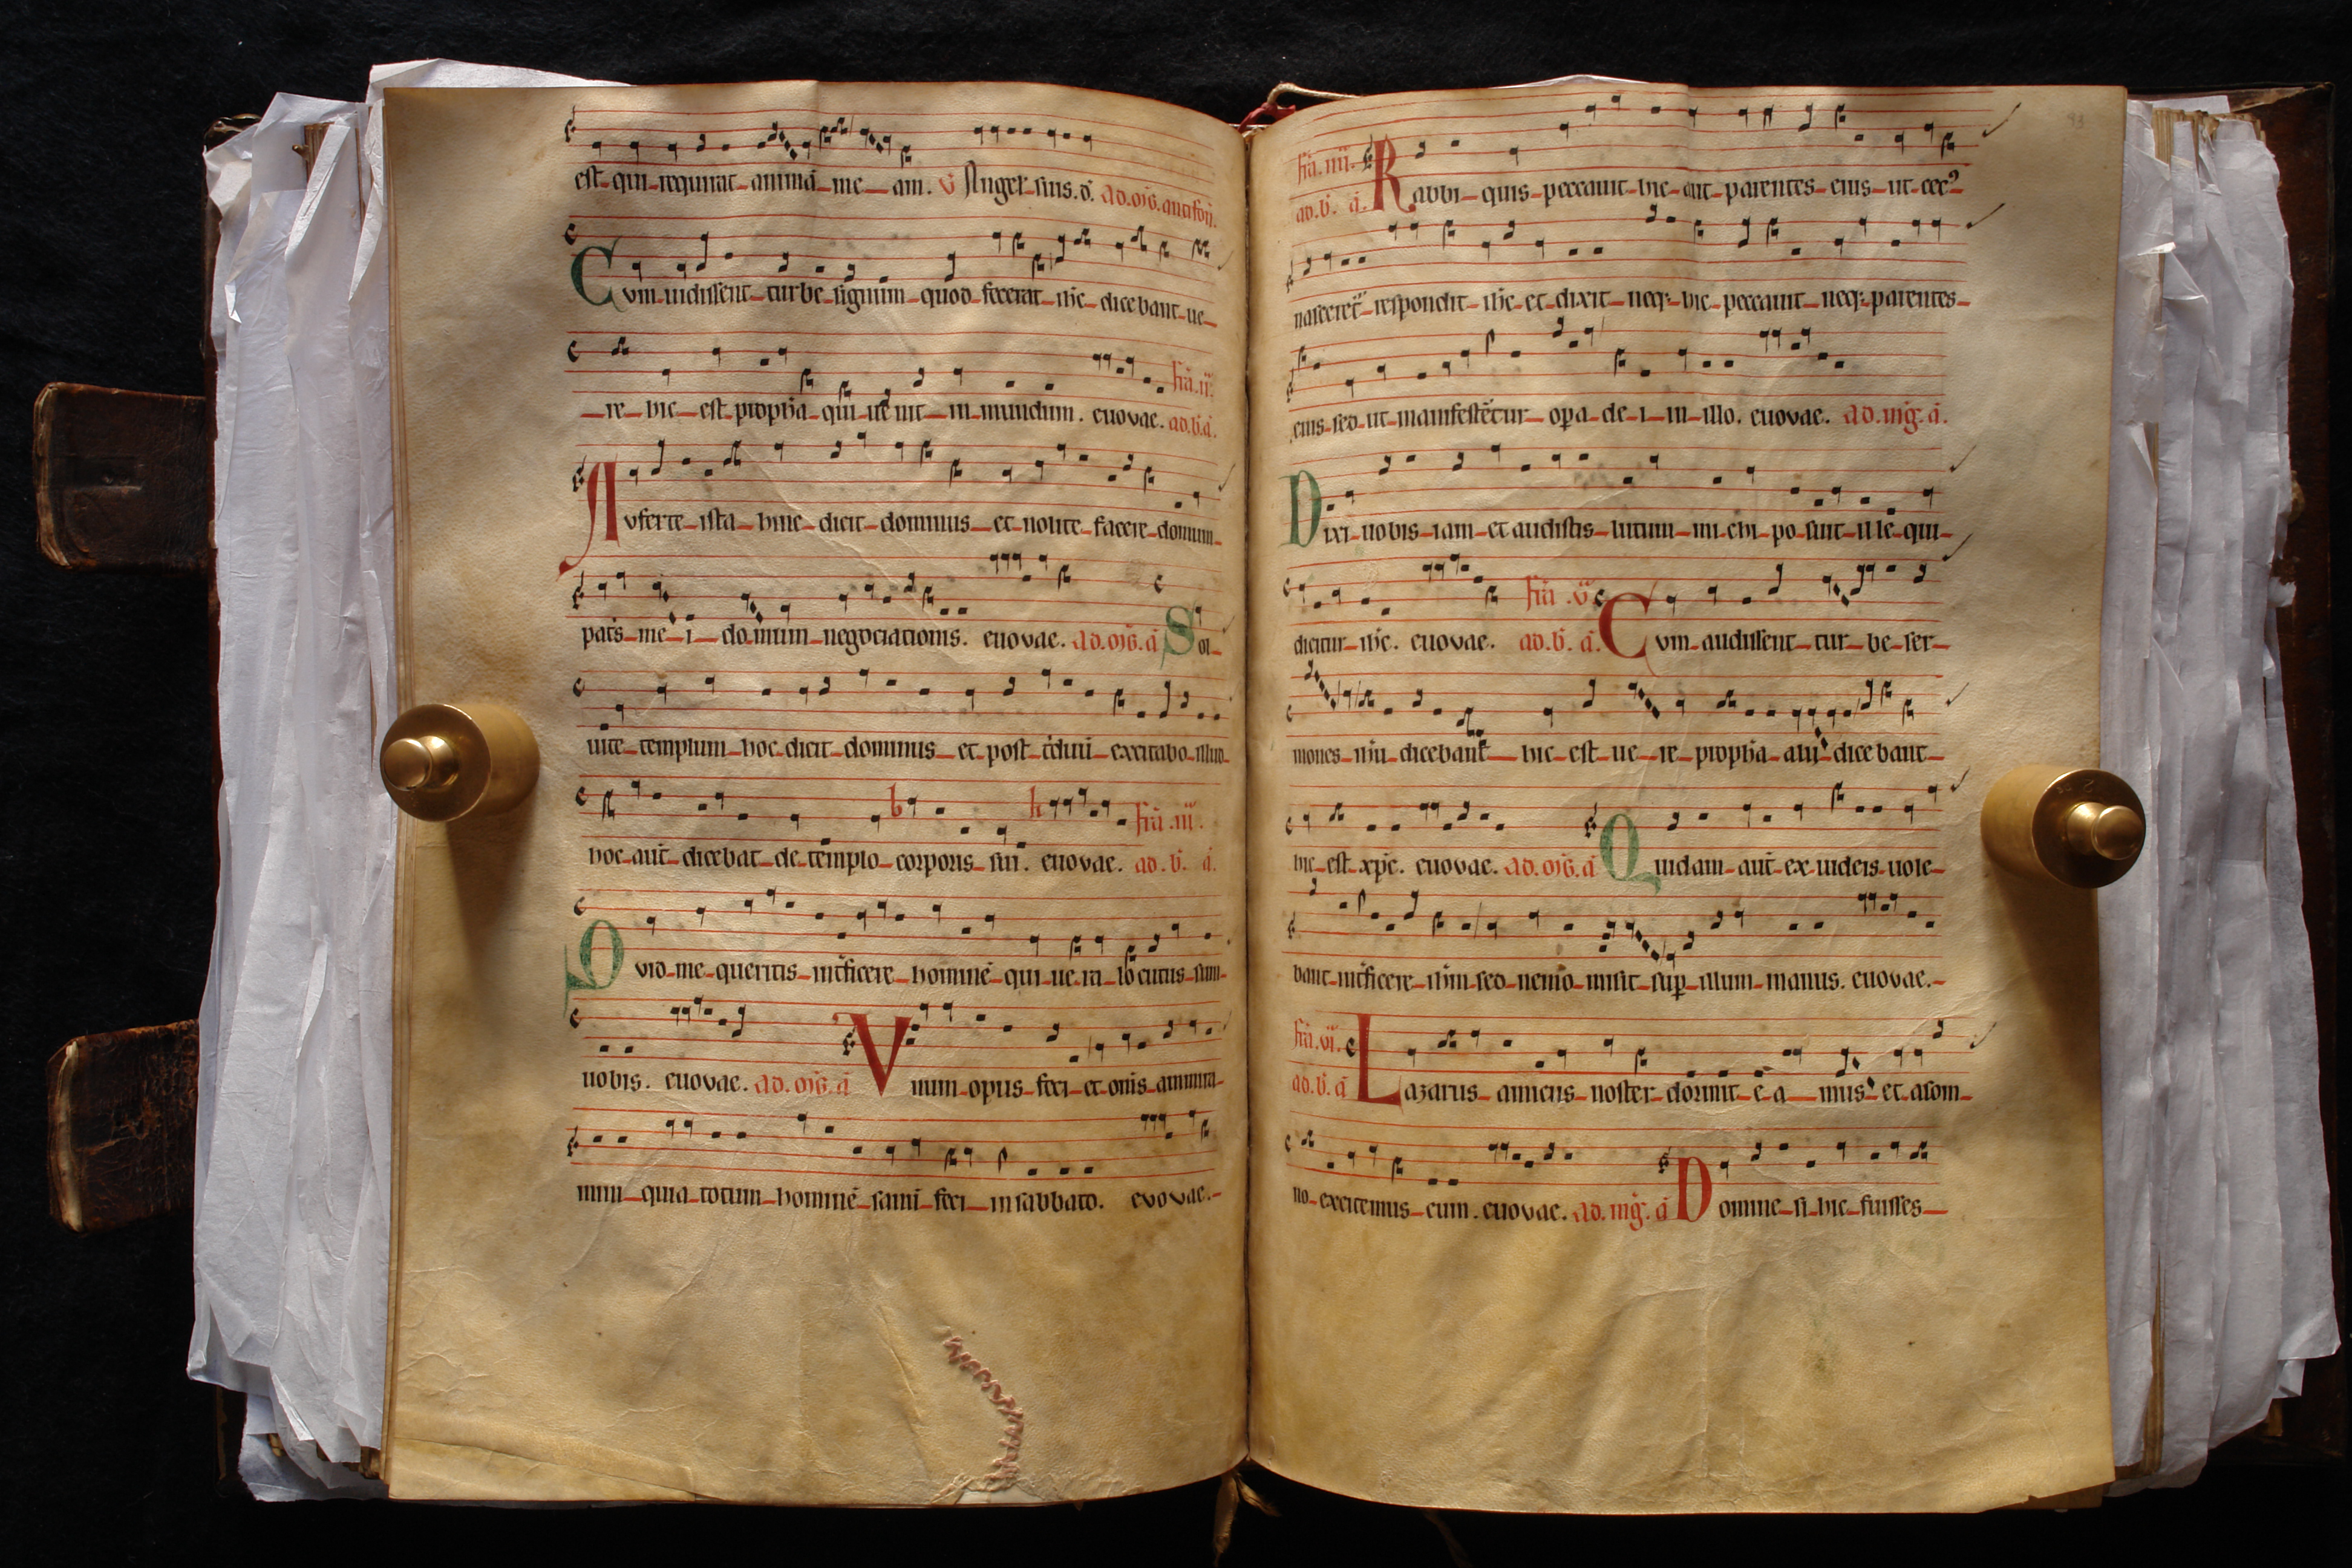 est qui requirat animā me am. V Anger suis. d. ad. mg. antifon.
Cvm uidissent turbe signum quod fecerat ihc dicebant ue
re hic est propħa qui uenit in mundum. euovae. fria. ii. ad. b. a.
Avferte ista hinc dicit dominus et nolite facere domum
patˢ me i domum negociationis. euovae. ad. mg. a Sol
uite templum hoc dicit dominus et post tˢduū excitabo illud
hoc aut dicebat de templo corporis sui. euovae. fria. iii. ad. b. a.
Qvid me queritis intficere hominē qui ue ra lo cutus sum
uobis. euovae. ad. mg. a Vnum opus feci et omˢ ammira
mini quia totum hominē sanū feci in sabbato. evovae.
93
fria. iiii. ad. b. a. Rabbi quis peccauit hic aut parentes eius ut cec⁹
nasceret respondit ihc et dixit neq; hic peccauit neq; parentes
eius sed ut manifestētur opa de i in illo. euovae. ad. mg. a.
Dixi uobis iam et audistis lutum mi chi po suit il le qui
dicitur ihc. euovae. fria. v ad. b. a. Cvm audissent tur be ser
mones ihu dicebant hic est ue re propħa alii dice bant
hic est xpc. euovae. ad. mg. a Quidam aut ex iudeis uole
bant intficere ihm sed nemo misit sup illum manus. euovae.
fria. vi. ad. b. a Lazarus amicus noster dormit e a mus et a som
no excitemus eum. euovae. ad. mg. a Domine si hic fuisses